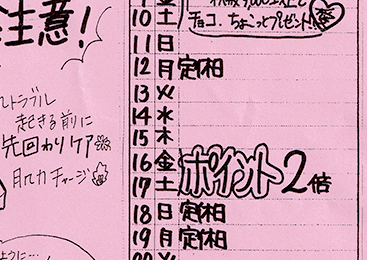 注意!
トラブル
起きる前に
先回りケア
肌力チャージ
ように…
9 金
10 土
チョコ、ちょこっとプレゼント!!
11 日
12 月 定休日
13 火
14 水
15 木
16 金 ポイント2倍
17 土
18 日 定休日
19 月 定休日
20 火